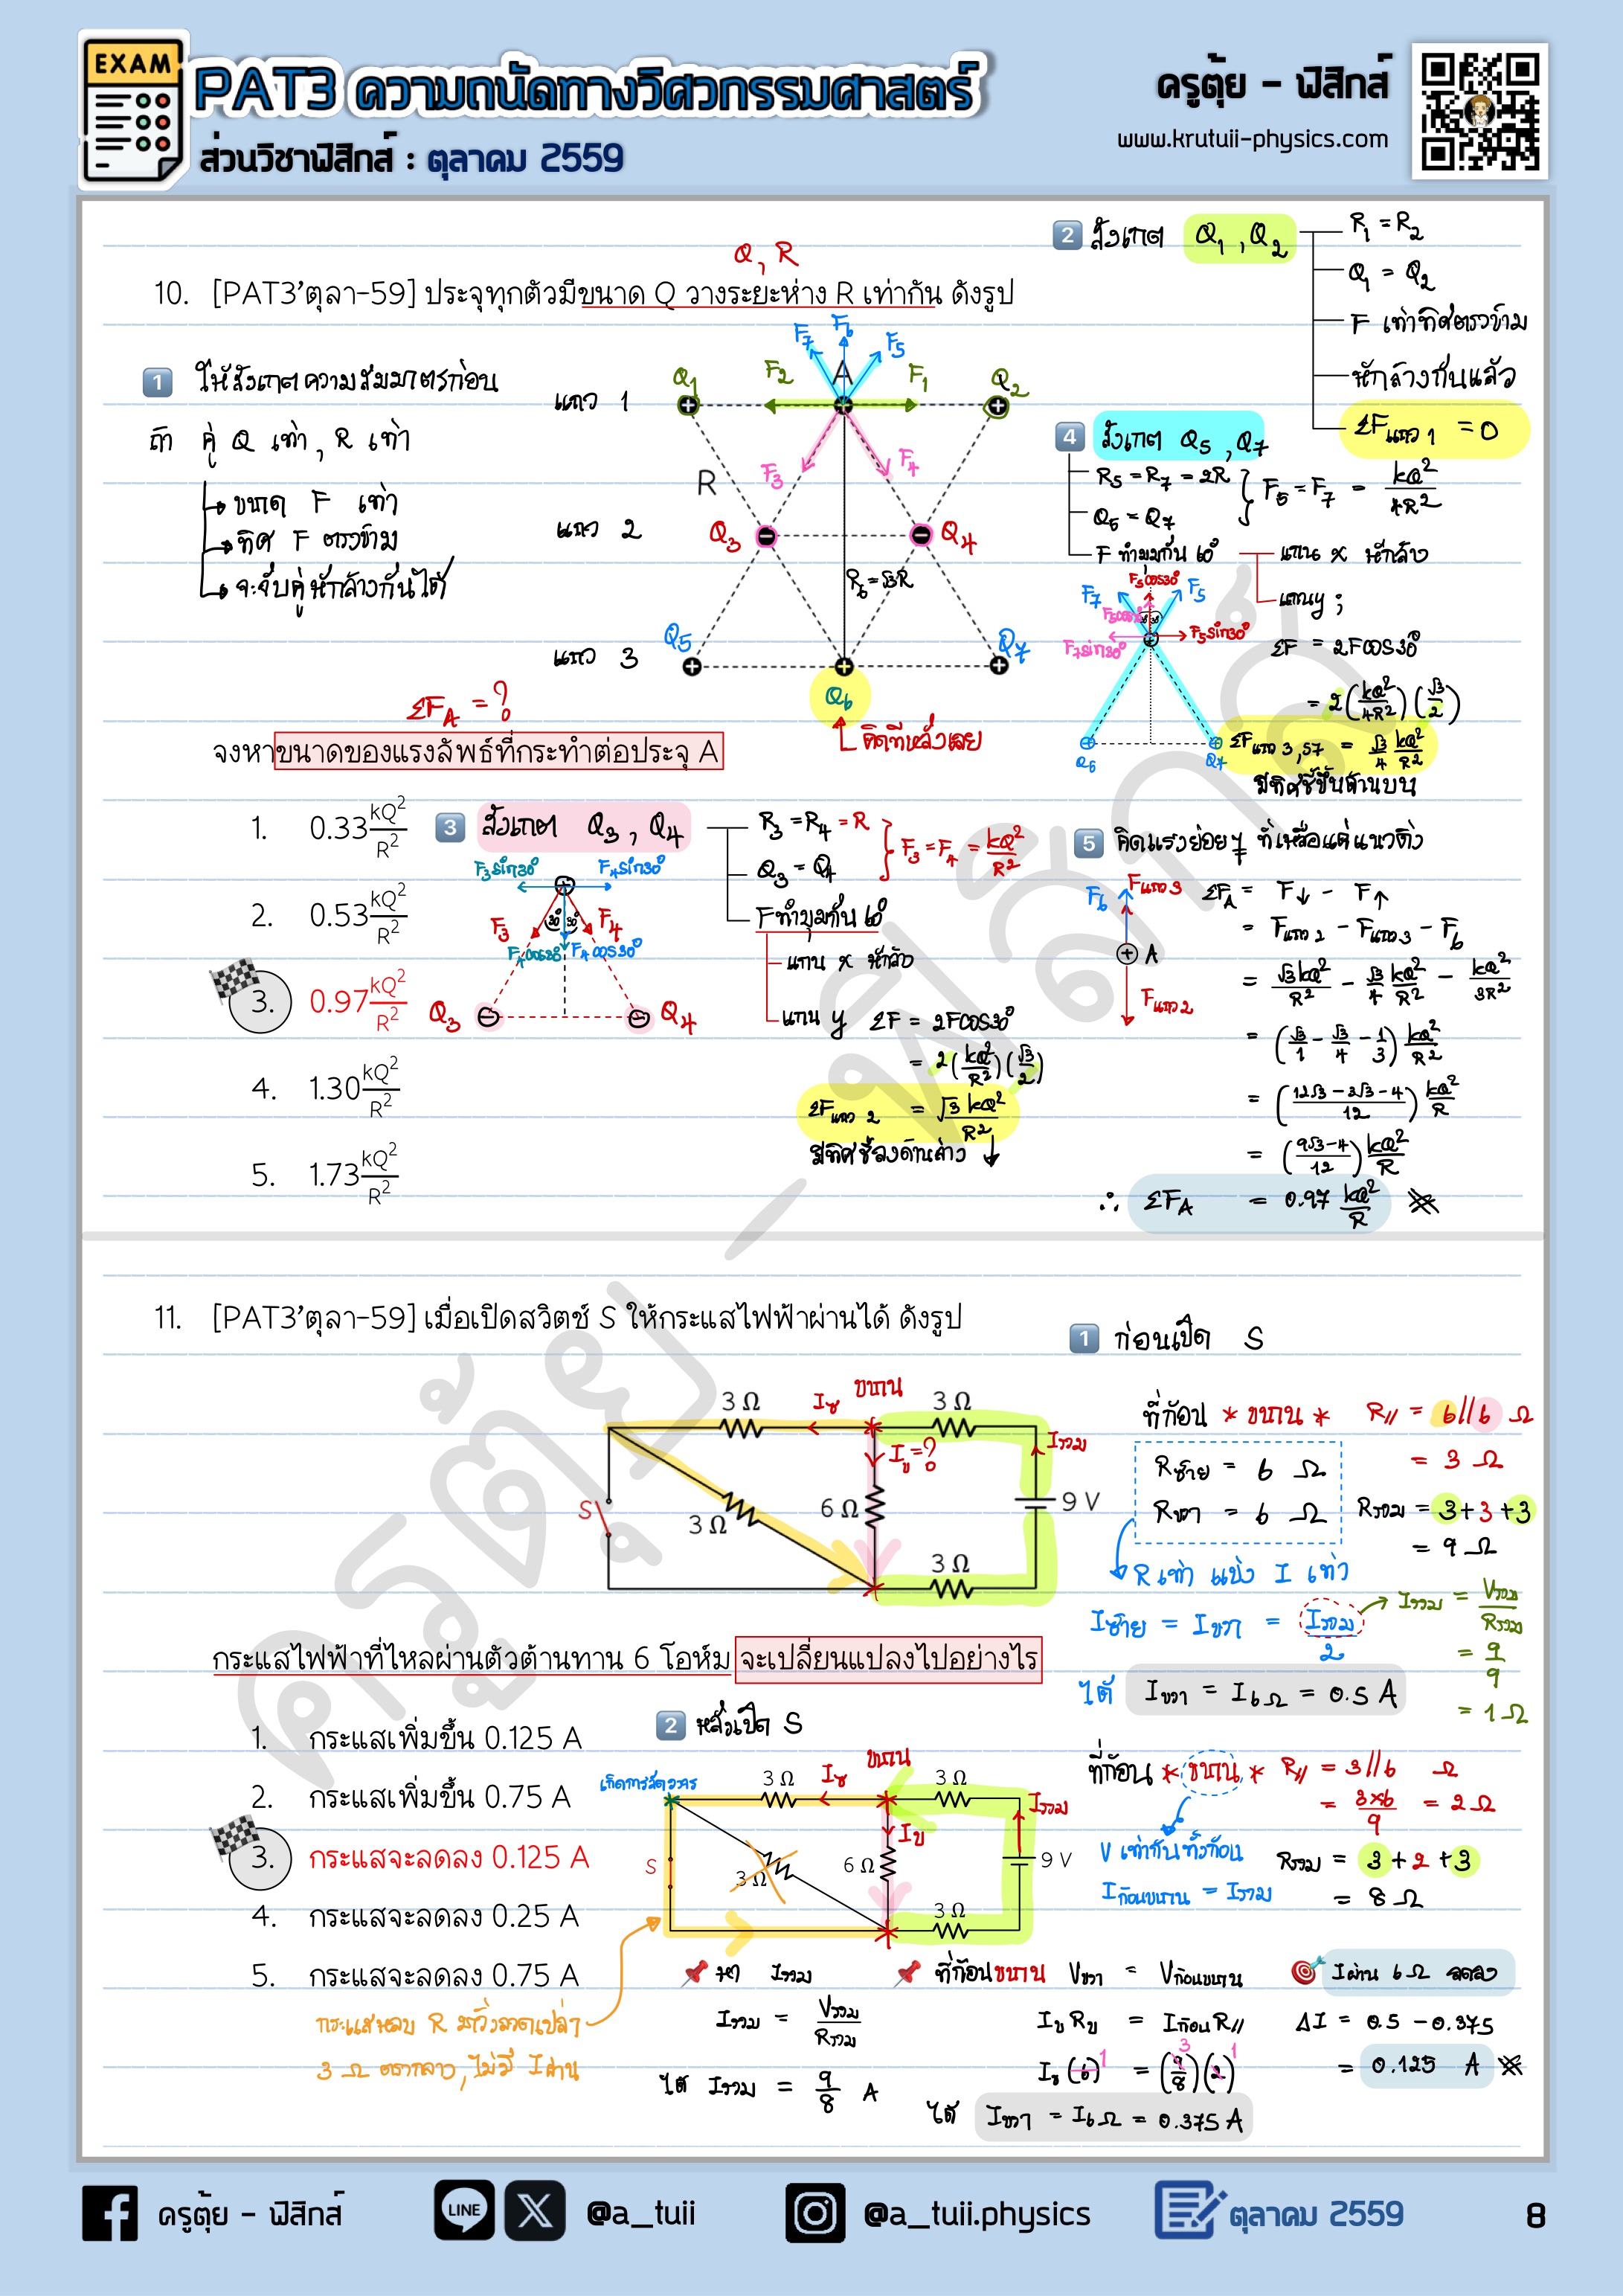 EXAM
PAT3 ความถนัดทางวิศวกรรมศาสตร์
ส่วนวิชาฟิสิกส์ : ตุลาคม 2559
ครูตุ้ย - ฟิสิกส์
www.krutuii-physics.com
Q, R
10. [PAT3'ตุลา-59] ประจุทุกตัวมีขนาด Q วางระยะห่าง R เท่ากัน ดังรูป
1 ให้สังเกตความสมมาตรก่อน
ถ้า คู่ Q เท่า, R เท่า
ขนาด F เท่า
ทิศ F ตรงข้าม
จะจับคู่หักล้างกันได้
แถว 1
แถว 2
แถว 3
F7 F6 F5
Q1 F2 A F1 Q2
F3 F4
R
Q3 Q4
R6 = √3R
Q5 Q6 Q7
คิดทีหลังเลย
ΣFA = ?
จงหาขนาดของแรงลัพธ์ที่กระทำต่อประจุ A
1. 0.33 kQ²/R²
2. 0.53 kQ²/R²
3. 0.97 kQ²/R²
4. 1.30 kQ²/R²
5. 1.73 kQ²/R²
2 สังเกต Q1, Q2
R1 = R2
Q1 = Q2
F เท่าทิศตรงข้าม
หักล้างกันแล้ว
ΣFแถว 1 = 0
3 สังเกต Q3, Q4
R3 = R4 = R
Q3 = Q4
F3 = F4 = kQ²/R²
Fทำมุมกัน 60°
แกน x หักล้าง
แกน y ΣF = 2Fcos30°
= 2(kQ²/R²)(√3/2)
ΣFแถว 2 = √3 kQ²/R²
มีทิศชี้ลงด้านล่าง ↓
F3sin30° F4sin30°
30° 30°
F3 F4
F4cos30° F4cos30°
Q3 Q4
4 สังเกต Q5, Q7
R5 = R7 = 2R
Q5 = Q7
F5 = F7 = kQ²/4R²
F ทำมุมกัน 60°
แกน x หักล้าง
แกน y ;
ΣF = 2Fcos30°
= 2(kQ²/4R²)(√3/2)
ΣFแถว 3,57 = √3/4 kQ²/R²
มีทิศชี้ขึ้นด้านบน
F5cos30°
F7 F5
F7sin30° F5sin30°
Q7
5 คิดแรงย่อยๆ ที่เหลือแต่แนวดิ่ง
F6 Fแถว 3
A
Fแถว 2
ΣFA = F↓ - F↑
= Fแถว 2 - Fแถว 3 - F6
= √3kQ²/R² - √3/4 kQ²/R² - kQ²/3R²
= (√3/1 - √3/4 - 1/3) kQ²/R²
= (12√3 - 3√3 - 4/12) kQ²/R
= (9√3-4/12) kQ²/R
∴ ΣFA = 0.97 kQ²/R
11. [PAT3'ตุลา-59] เมื่อเปิดสวิตช์ S ให้กระแสไฟฟ้าผ่านได้ ดังรูป
3 Ω Iซ ขนาน 3 Ω Iรวม
Iข = ?
S 3 Ω 6 Ω 9 V
3 Ω
กระแสไฟฟ้าที่ไหลผ่านตัวต้านทาน 6 โอห์ม จะเปลี่ยนแปลงไปอย่างไร
1. กระแสเพิ่มขึ้น 0.125 A
2. กระแสเพิ่มขึ้น 0.75 A
3. กระแสจะลดลง 0.125 A
4. กระแสจะลดลง 0.25 A
5. กระแสจะลดลง 0.75 A
กระแสหลบ R มาวิ่งลวดเปล่า
3 Ω ตรงกลาง, ไม่มี I ผ่าน
1 ก่อนเปิด S
ที่ก้อน * ขนาน *
R// = 6//6 Ω
= 3 Ω
Rซ้าย = 6 Ω
Rขวา = 6 Ω
Rรวม = 3+3+3
= 9 Ω
R เท่า แบ่ง I เท่า
Iซ้าย = Iขวา = Iรวม/2
Iรวม = Vรวม/Rรวม
= 9/9
= 1 Ω
ได้ Iขวา = I6Ω = 0.5 A
2 หลังเปิด S
เกิดการลัดวงจร
3 Ω Iซ ขนาน 3 Ω Iรวม
Iข
S 3 Ω 6 Ω 9 V
3 Ω
ที่ก้อน * ขนาน *
R// = 3//6 Ω
= 3×6/9 = 2 Ω
V เท่ากันทั้งก้อน
Iก้อนขนาน = Iรวม
Rรวม = 3+2+3
= 8 Ω
หา Iรวม
Iรวม = Vรวม/Rรวม
ได้ Iรวม = 9/8 A
ที่ก้อนขนาน Vขวา = Vก้อนขนาน
Iข Rข = Iก้อน R//
Iข (6) 1 = (9/8)(2) 3 1
ได้ Iขวา = I6Ω = 0.375 A
Iผ่าน 6 Ω ลดลง
ΔI = 0.5 - 0.375
= 0.125 A
ครูตุ้ย - ฟิสิกส์
ครูตุ้ย - ฟิสิกส์
LINE
@a_tuii
@a_tuii.physics
ตุลาคม 2559
8